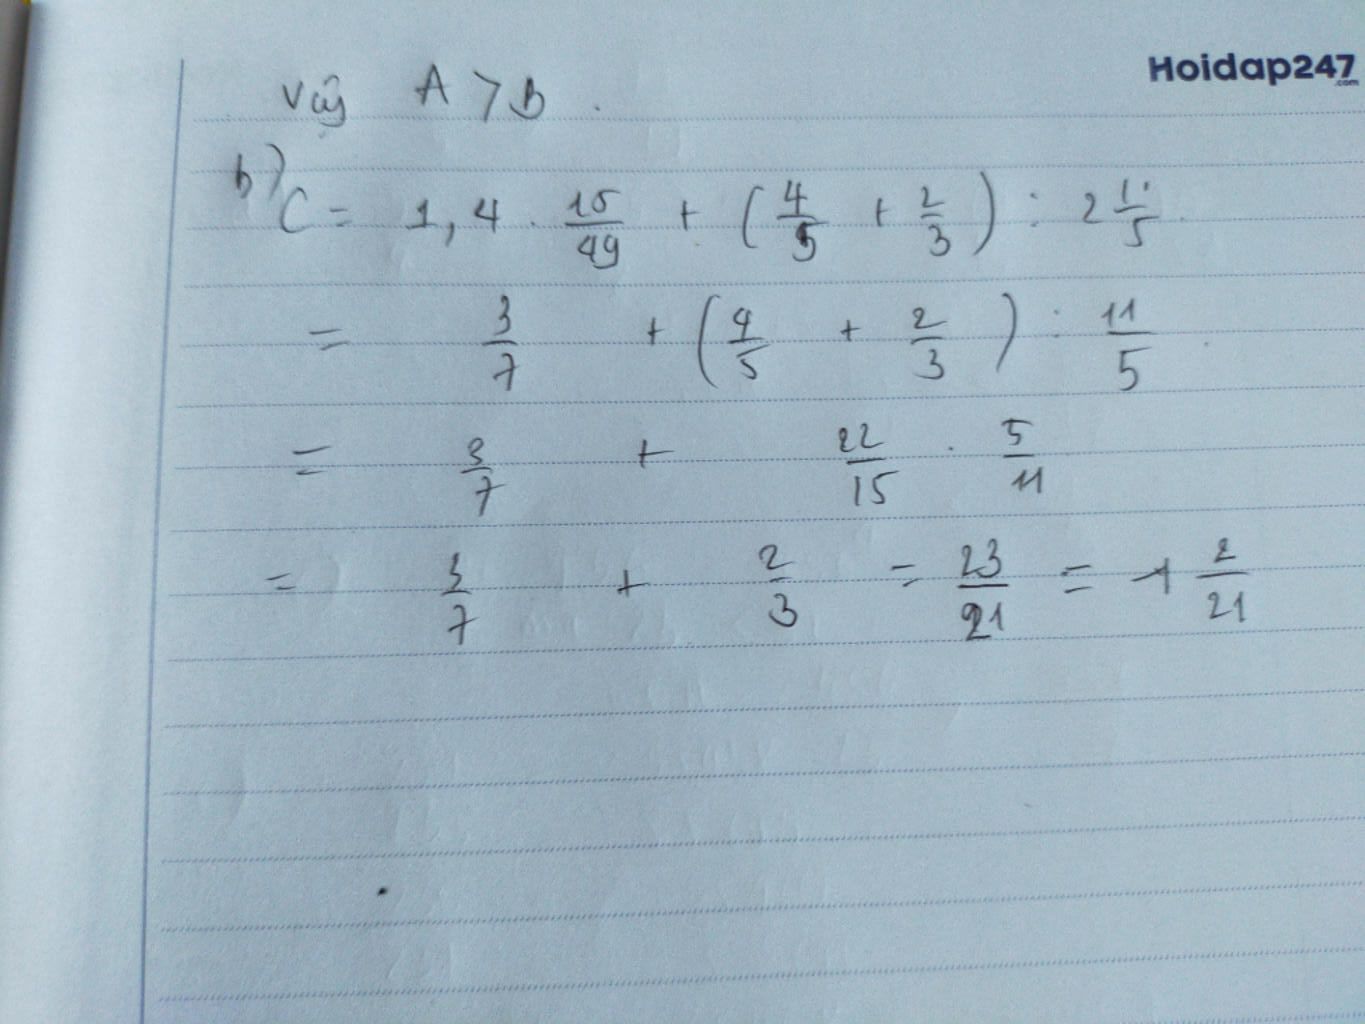 Hoidap247
.com
Vậy A > B .
b) C = 1,4 . 15/49 + (4/5 + 2/3) : 2 1/5
= 3/7 + (4/5 + 2/3) : 11/5
= 3/7 + 22/15 . 5/11
= 3/7 + 2/3 = 23/21 = 1 2/21